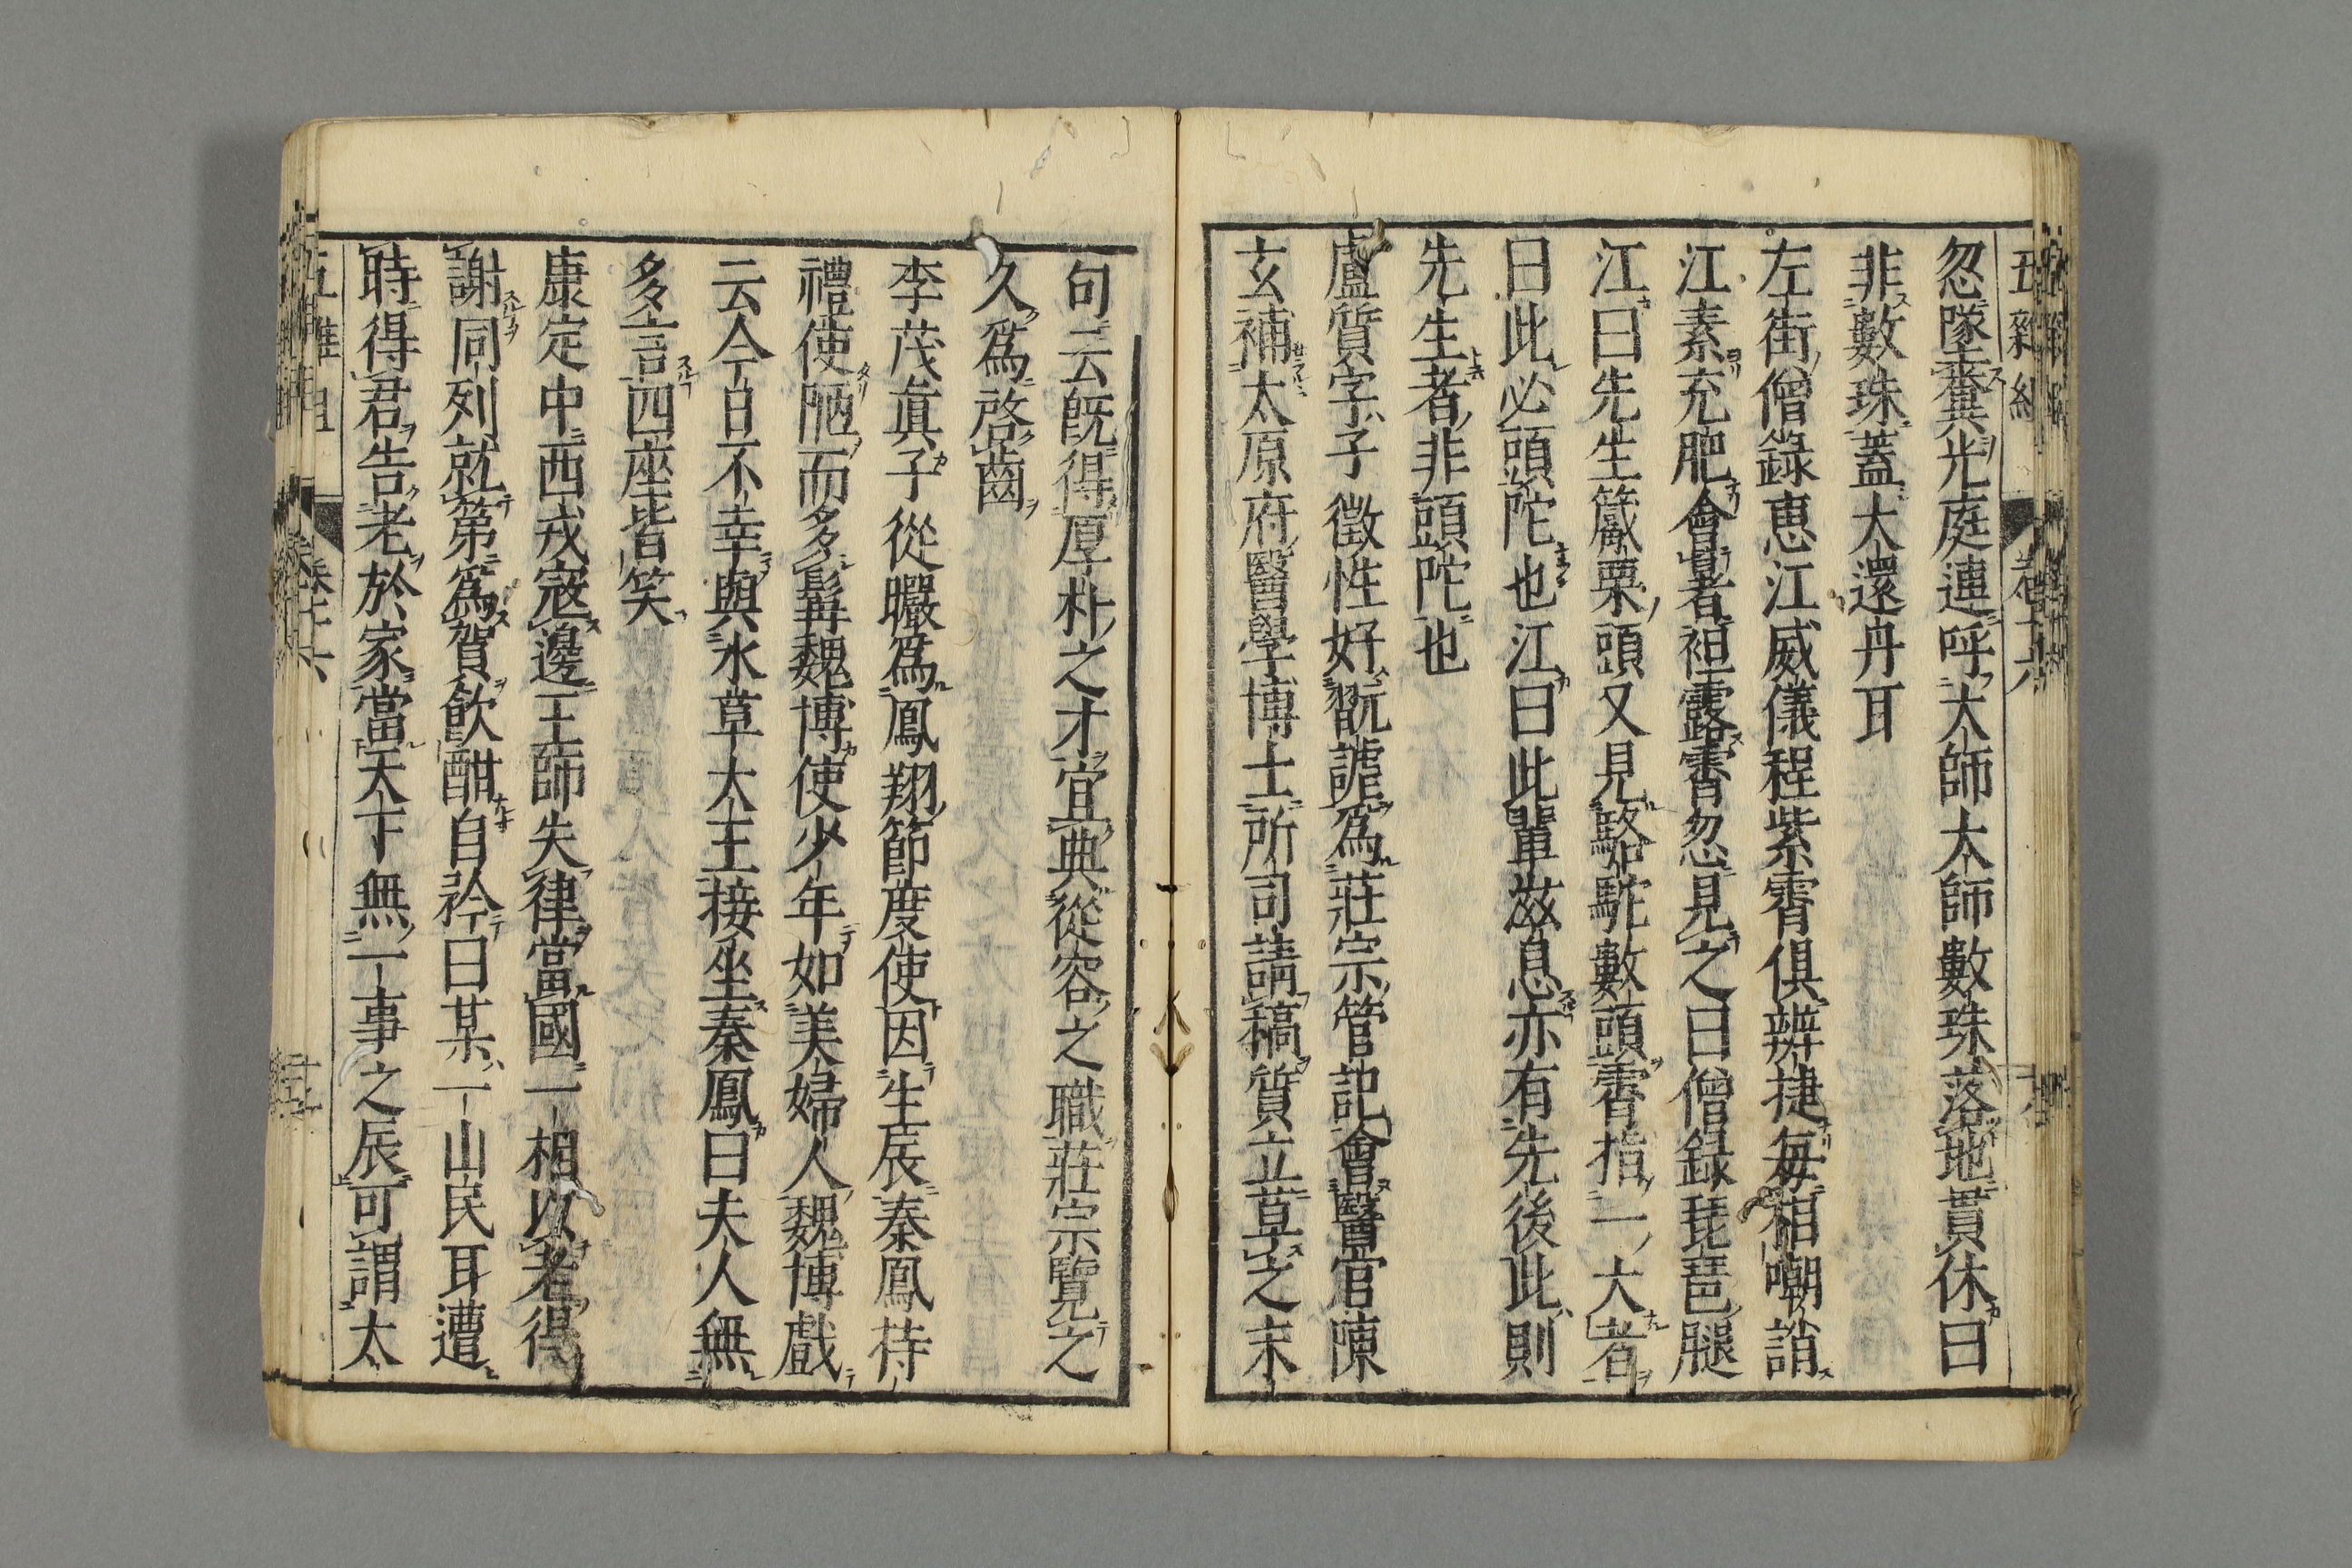 五雜組 卷十六
忽墜糞光庭連呼大師大師數珠落地貫休曰
非數珠蓋大還丹耳
左街僧錄惠江威儀程紫霄俱辨捷每相嘲誚
江素充肥會暑袒露霄忽見之曰僧錄琵琶腿
江曰先生篳栗頭又見駱駝數頭霄指一大者
曰此必頭陀也江曰此輩滋息亦有先後此則
先生者非頭陀也
盧質字子徵性好翫謔爲莊宗管記會醫官陳
玄補太原府醫學博士所司請稿質立草之末
句云旣得厚朴之才宜典從容之職莊宗覽之
久爲啓齒
李茂眞子從曮爲鳳翔節度使因生辰秦鳳持
禮使陋而多髯魏博使少年如美婦人魏博戲
云今日不幸與水草大王接坐秦鳳曰夫人無
多言四座皆笑
康定中西戎寇邊王師失律當國一相以老得
謝同列就第爲賀飮酣自矜曰某一山民耳遭
時得君告老於家當天下無一事之辰可謂太
五雜組 卷十六